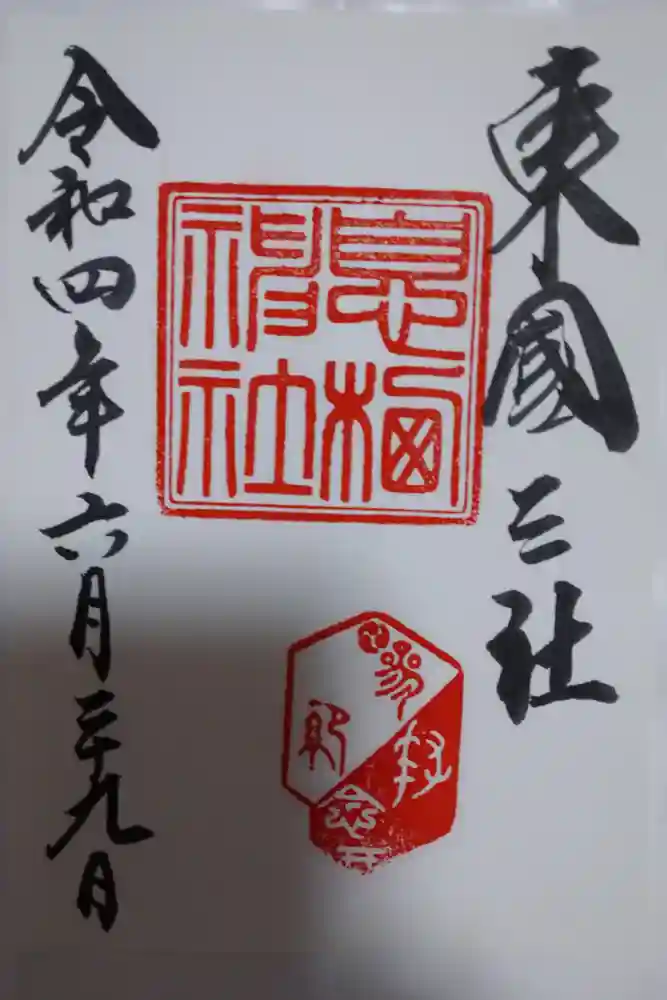 東國三社
息栖
神社
令和四年六月二十九日